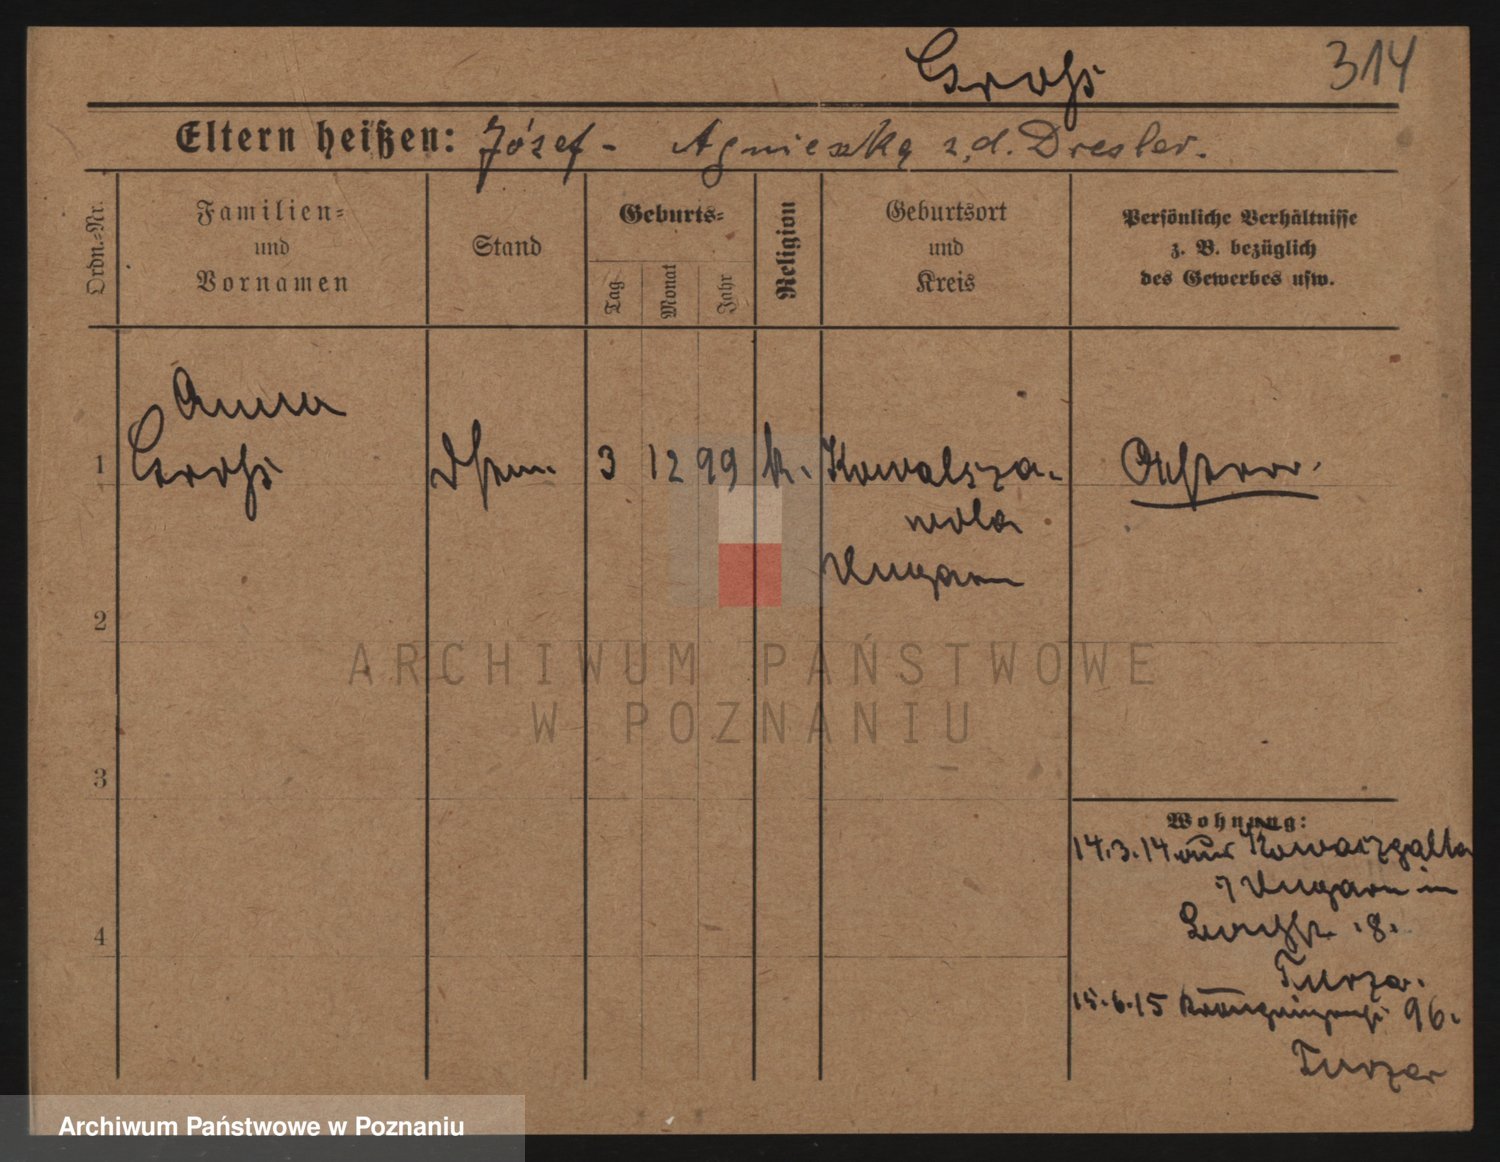 Groß 314
Eltern heißen: Józef - Agnieszka z.d. Dresler.
Ordn.-Nr.
Familien-
und
Vornamen
Stand
Geburts-
Tag
Monat
Jahr
Religion
Geburtsort
und
Kreis
Persönliche Verhältnisse
z. B. bezüglich
des Gewerbes usw.
Anna
1 Groß 3 12 99 k. Kowalsza-
wola
Ungarn
2
3
4
Wohnung:
14.3.14 aus
Ungarn in
8.
Turza.
15.6.15 96.
Turza
ARCHIWUM PAŃSTWOWE
W POZNANIU
Archiwum Państwowe w Poznaniu